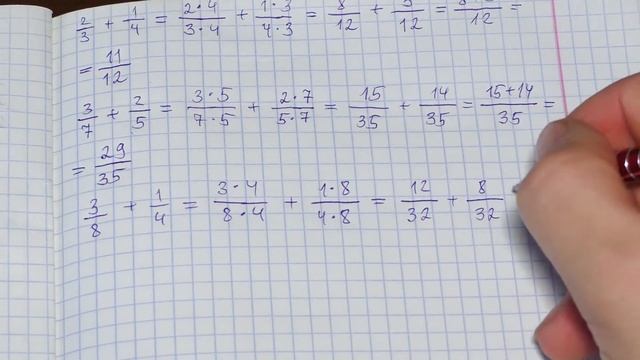 2/3 + 1/4 = 2·4/3·4 + 1·3/4·3 = 8/12 + 3/12 = /12 =
= 11/12
3/7 + 2/5 = 3·5/7·5 + 2·7/5·7 = 15/35 + 14/35 = 15+14/35 =
= 29/35
3/8 + 1/4 = 3·4/8·4 + 1·8/4·8 = 12/32 + 8/32